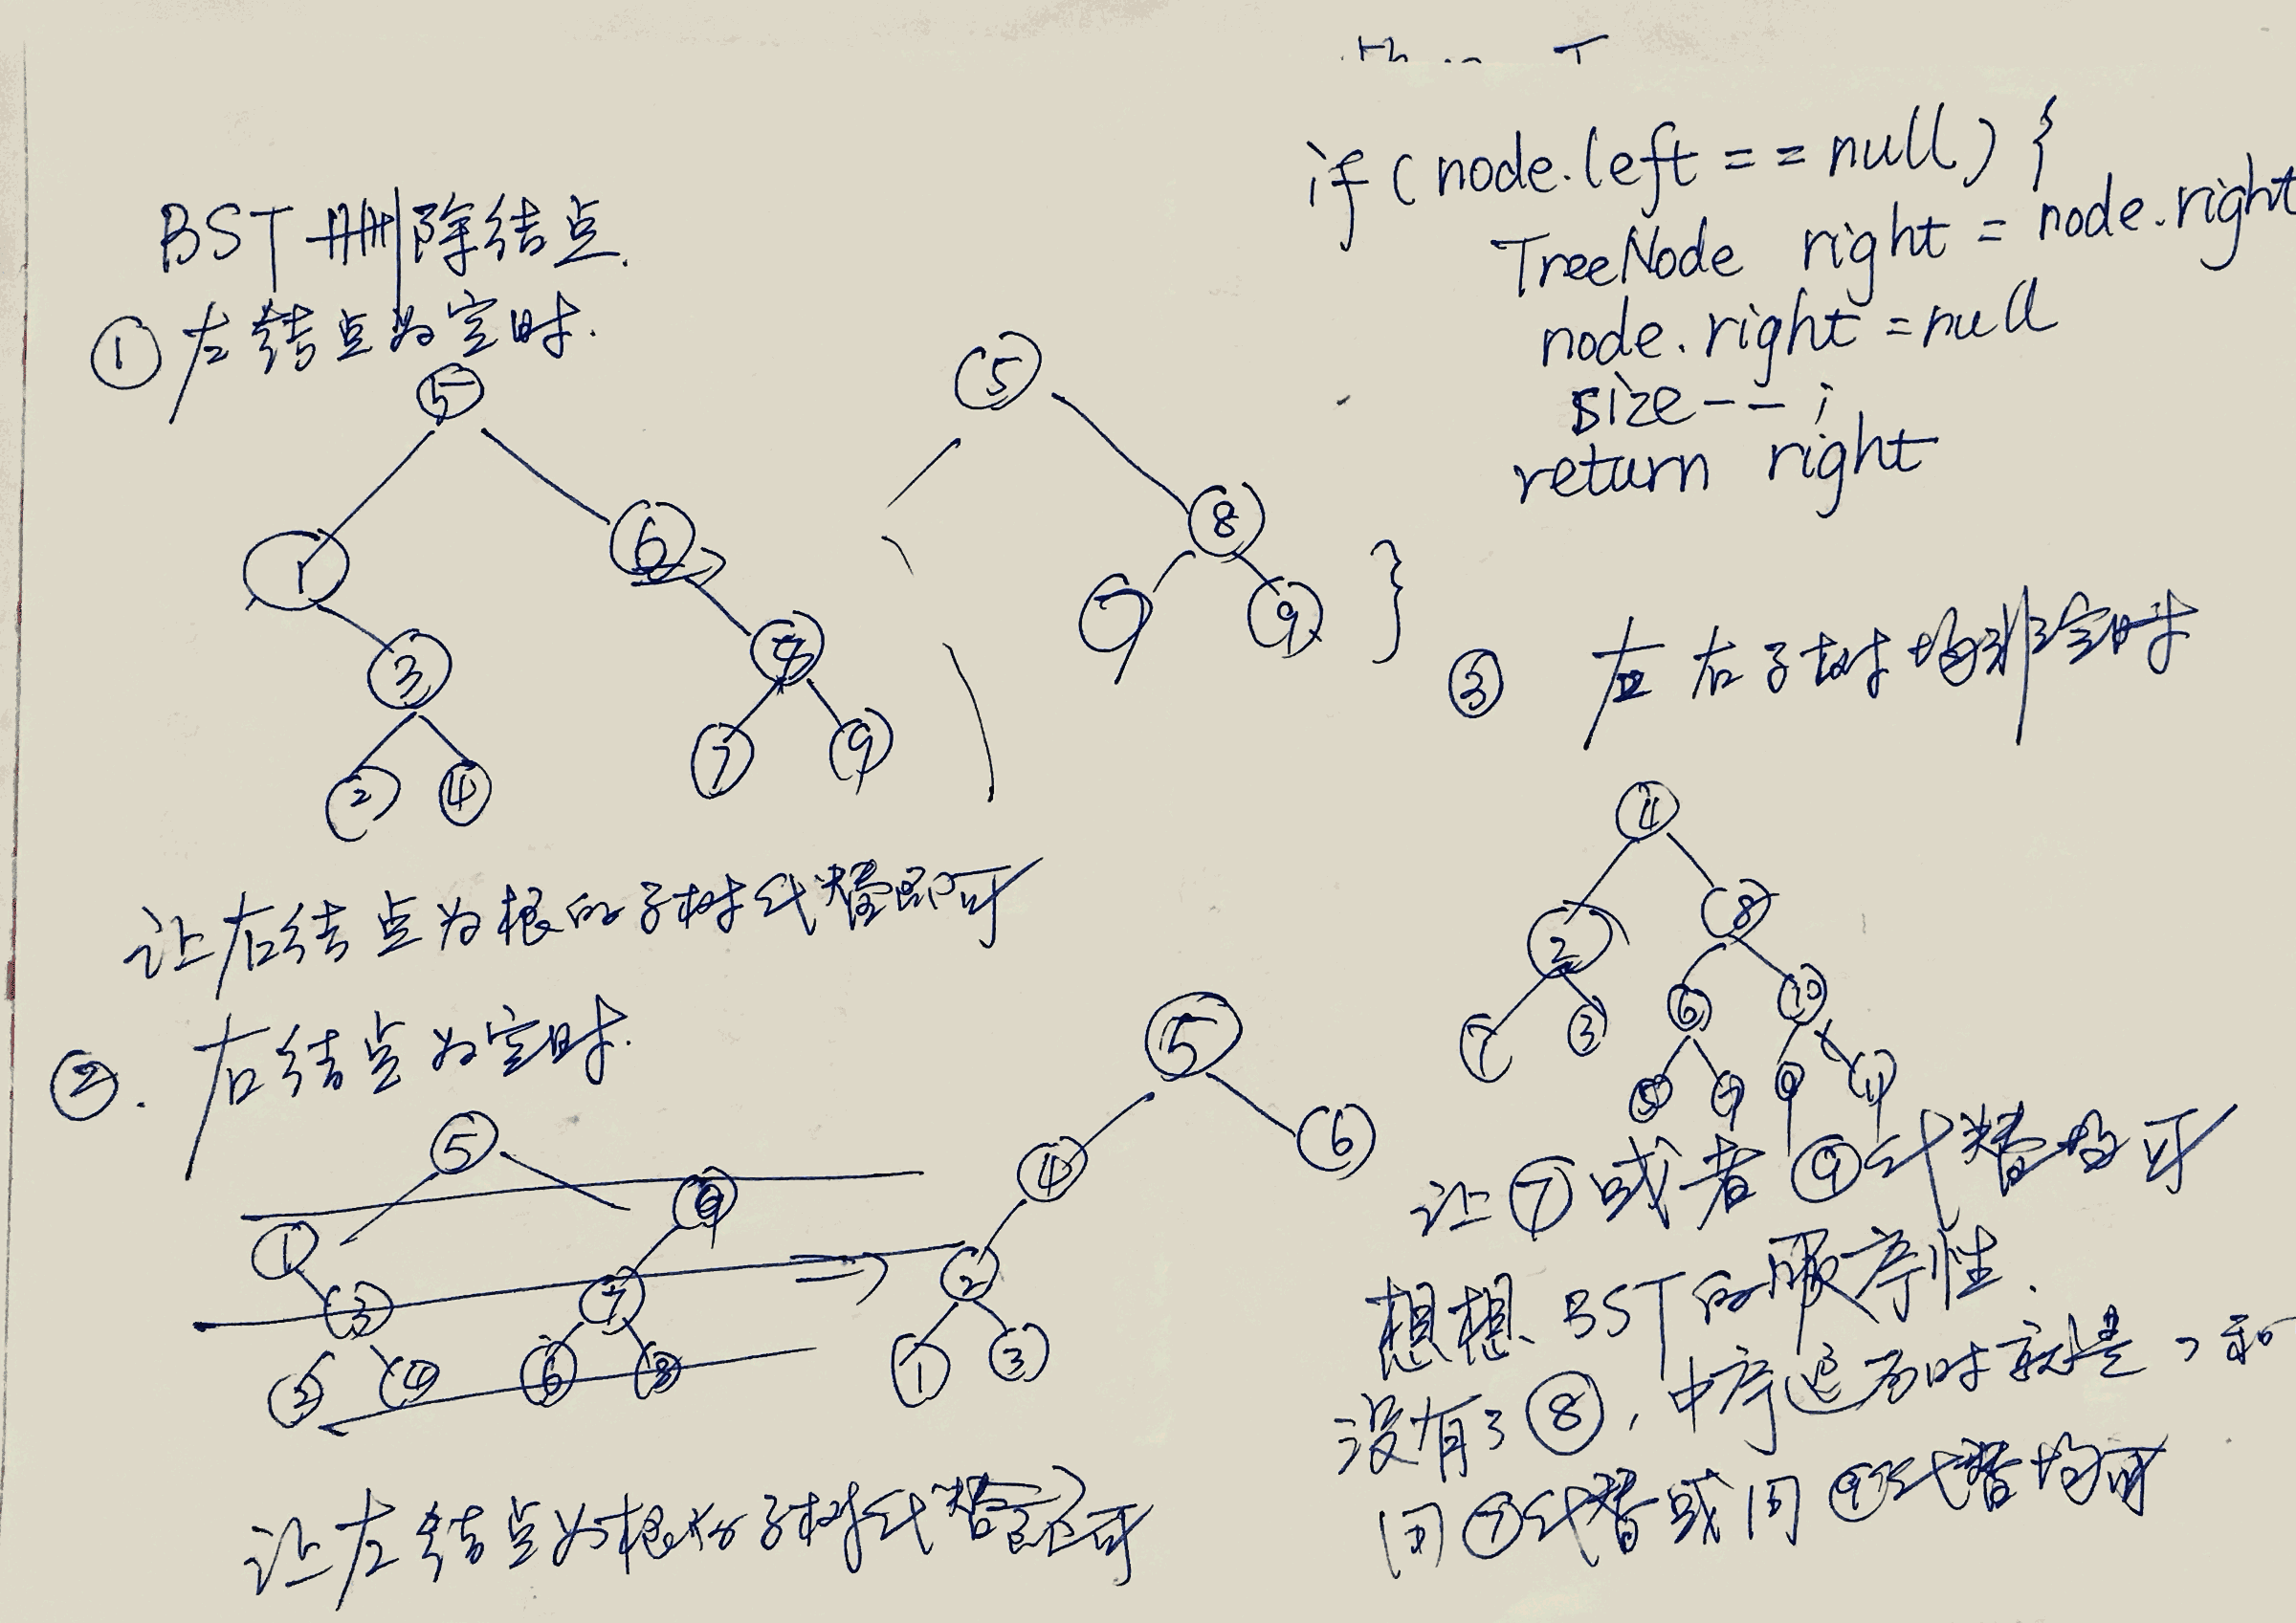 BST删除结点.
① 左结点为空时.
5
1 6
3 8
2 4 7 9
5
8
7 9
让右结点为根的子树代替即可
②. 右结点为空时.
5
1 9
3 7
2 4 6 8
⇒
5
4 6
2
1 3
让左结点为根的子树代替即可
if (node.left == null) {
TreeNode right = node.right
node.right = null
size--;
return right
}
③ 左右子树均非空时
4
2 8
1 3 6 10
5 7 9 11
让⑦或者⑨代替均可
想想BST的顺序性.
没有了⑧,中序遍历时就是 和
用⑦代替或用⑨代替均可